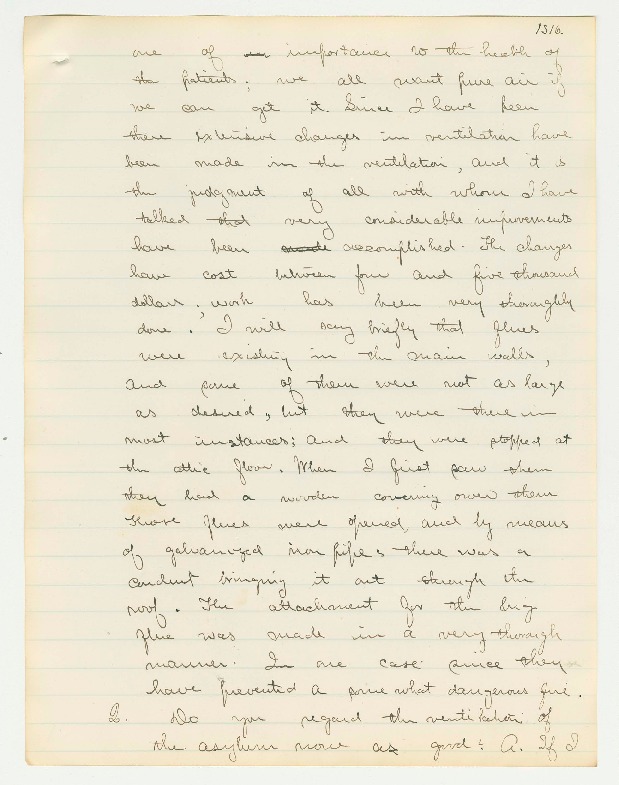 1316.
one of importance to the health of
the patients; we all want pure air if
we can get it. Since I have been
there extensive changes in ventilation have
been made in the ventilation, and it is
the judgment of all with whom I have
talked that very considerable improvements
have been made accomplished. The changes
have cost between four and five thousand
dollars; work has been very thoroughly
done. I will say briefly that flues
were existing in the main walls,
and some of them were not as large
as desired, but they were there in
most instances; and they were stopped at
the attic floor. When I first saw them
they had a wooden covering over them
Those flues were opened, and by means
of galvanized iron pipes there was a
conduit bringing it out through the
roof. The attachment for the
flue was made in a very thorough
manner. In one case since they
have prevented a some what dangerous fire.
Q. Do you regard the ventilation of
the asylum now as good? A. If I